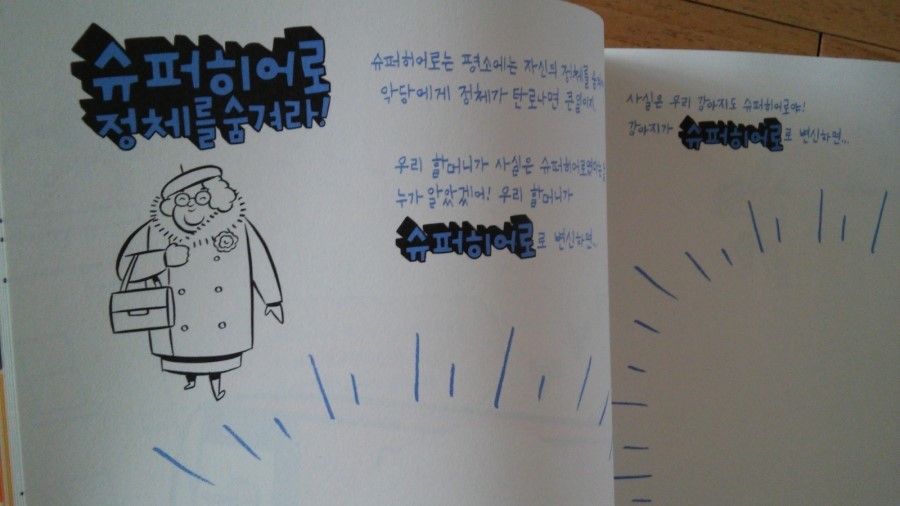 슈퍼히어로
정체를 숨겨라!
슈퍼히어로는 평소에는 자신의 정체를
악당에게 정체가 탄로나면 큰일이지.
우리 할머니가 사실은
누가 알았겠어! 우리 할머니가
슈퍼히어로로 변신하면...
사실은 우리 강아지도 슈퍼히어로야!
강아지가 슈퍼히어로로 변신하면...